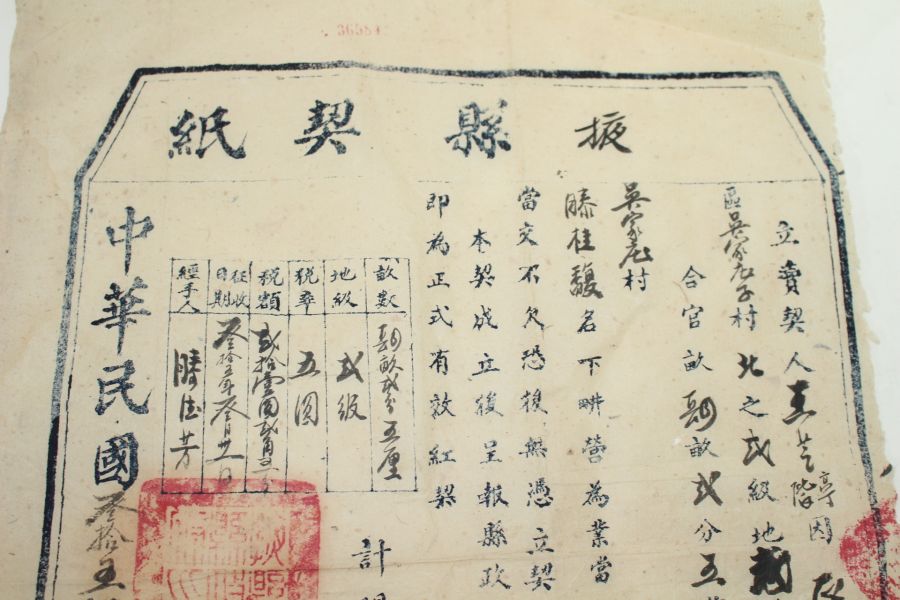 掖縣契紙
立賣契人王芝
區吳家庄子村北之弍級地
合官畝肆畝弍分五
吳家庄村
滕桂馥名下畊營為業當
當交不欠恐後無憑立契
本契成立後呈報縣政
即為正式有效紅契
計
畝數 肆畝弍分五厘
地級 弍級
税率 五圓
税額 弍拾壹圓弍角五
征收日期 叁拾五年叁月廿一日
經手人 滕德芳
中華民國叁拾五